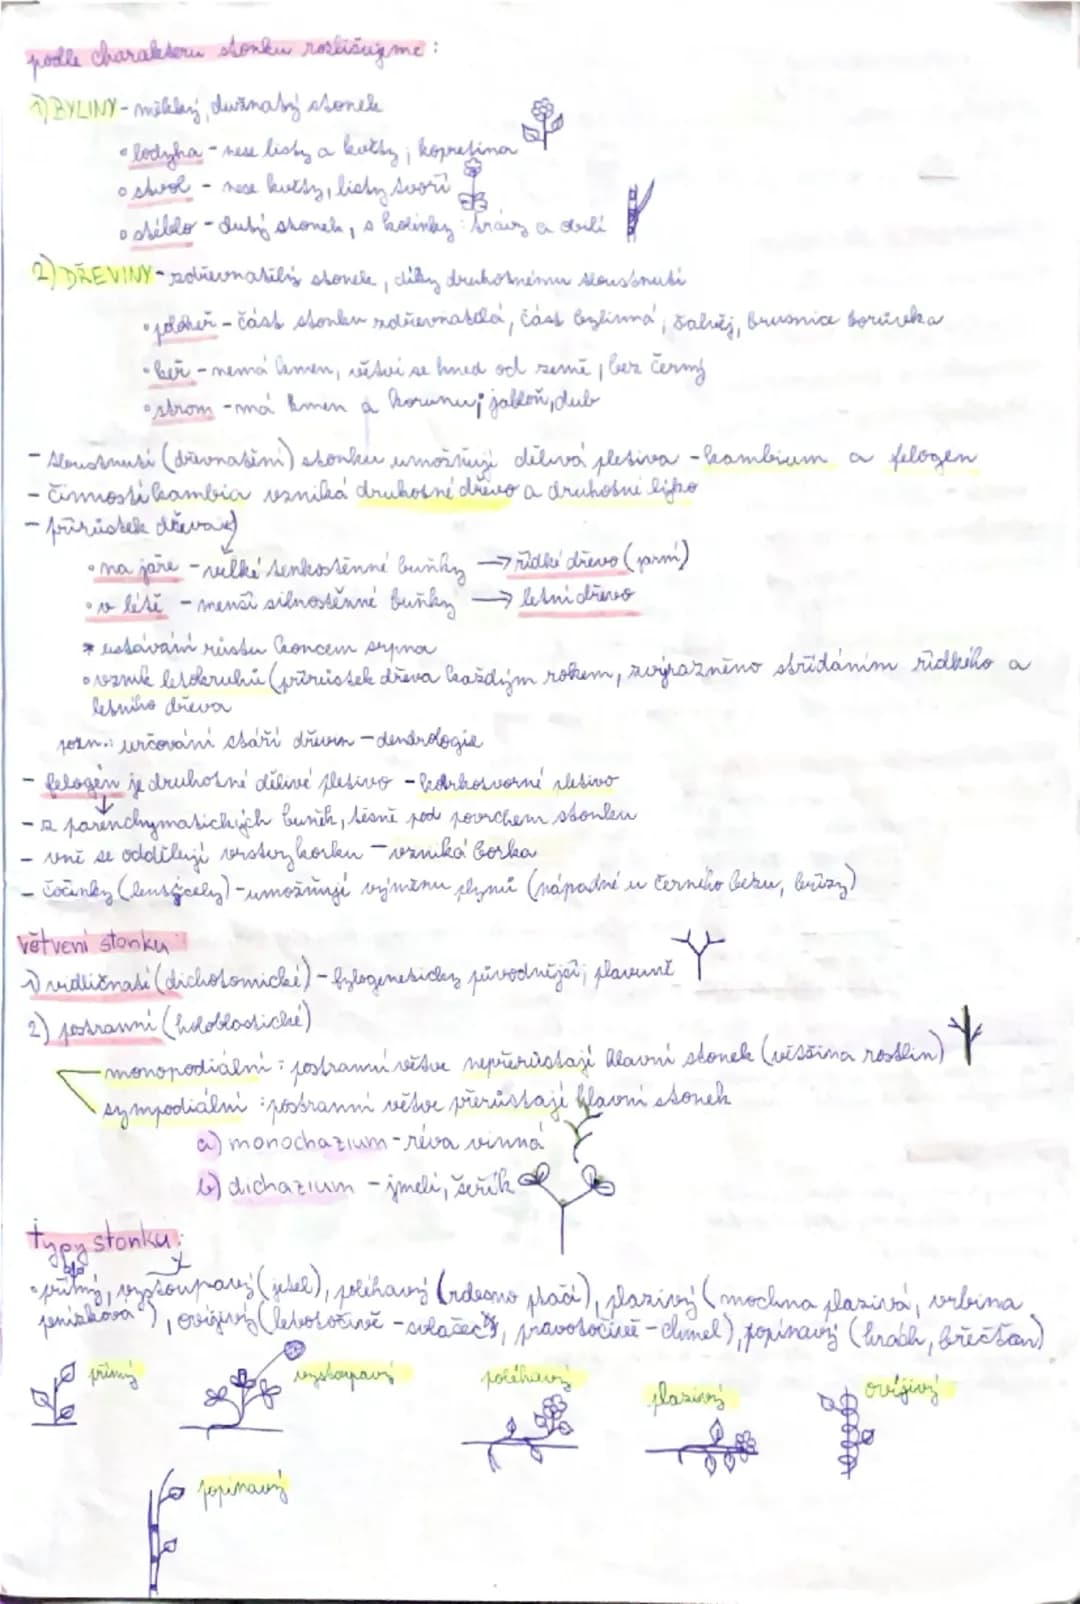 podle charakteru stonku rozlišujeme :
1) BYLINY - měkký, dužnatý stonek
• lodyha - nese listy a květy ; kopretina
• stvol - nese květy, listy tvoří
• stéblo - dutý stonek, s kolínky : trávy a obilí
2) DŘEVINY - zdřevnatělý stonek, díky druhotnému tloustnutí
• polokeř - část stonku zdřevnatělá, část bylinná ; šalvěj, brusnice borůvka
• keř - nemá kmen, větví se hned od země ; bez černý
• strom - má kmen a korunu ; jabloň, dub
- tloustnutí (dřevnatění) stonku umožňují dělivá pletiva - kambium a felogen
- činností kambia vzniká druhotné dřevo a druhotné lýko
- přírůstek dřeva
• na jaře - velké tenkostěnné buňky → řídké dřevo (jarní)
• v létě - menší silnostěnné buňky → letní dřevo
* ustávání růstu koncem srpna
• vznik letokruhů (přírůstek dřeva každým rokem, zvýrazněno střídáním řídkého a
letního dřeva
pozn.: určování stáří dřevin - dendrologie
- felogén je druhotné dělivé pletivo - korkotvorné pletivo
↓
- z parenchymatických buněk, těsně pod povrchem stonku
- vně se oddělují vrstvy korku - vzniká borka
- čočinky (lenticely) - umožňují výměnu plynů (nápadné u černého bezu, břízy)
větvení stonku :
1) vidličnaté (dichotomické) - fylogeneticky původnější ; plavuně
2) postranní (holoblastické)
monopodiální : postranní větve nepřerůstají hlavní stonek (většina rostlin)
sympodiální : postranní větve přerůstají hlavní stonek
a) monochazium - réva vinná
b) dichazium - jmelí, šeřík
typy stonku :
• přímý, vystoupavý (jetel), poléhavý (rdesno ptačí), plazivý (mochna plazivá, vrbina
penízková), ovíjivý (levotočivě - svlačec, pravotočivě - chmel), popínavý (hrách, břečťan)
přímý vystoupavý poléhavý plazivý ovíjivý
popínavý